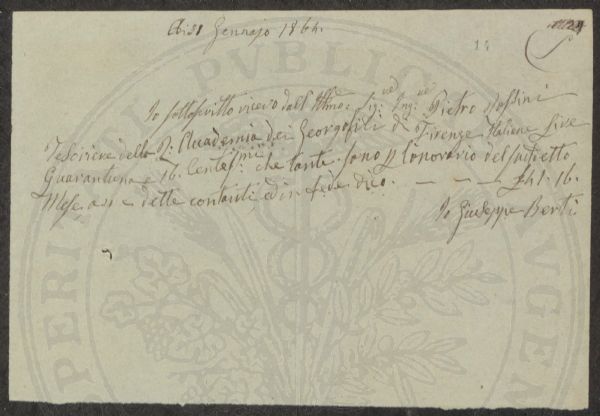 Adi 31 Gennajo 1864.
1124
Io sottoscritto ricevo dall' Illmo: Sig:re Ing:re Pietro Rossini
Tesoriere della R: Accademia dei Georgofili di Firenze Italiane Lire
Quarantuna e 16. Centesmi: che tante sono p l'onorario del sudetto
Mese ed in fede dico. — — — £ 41. 16.
Io Giuseppe Berti
PERITATI PUBLIC AUGEN